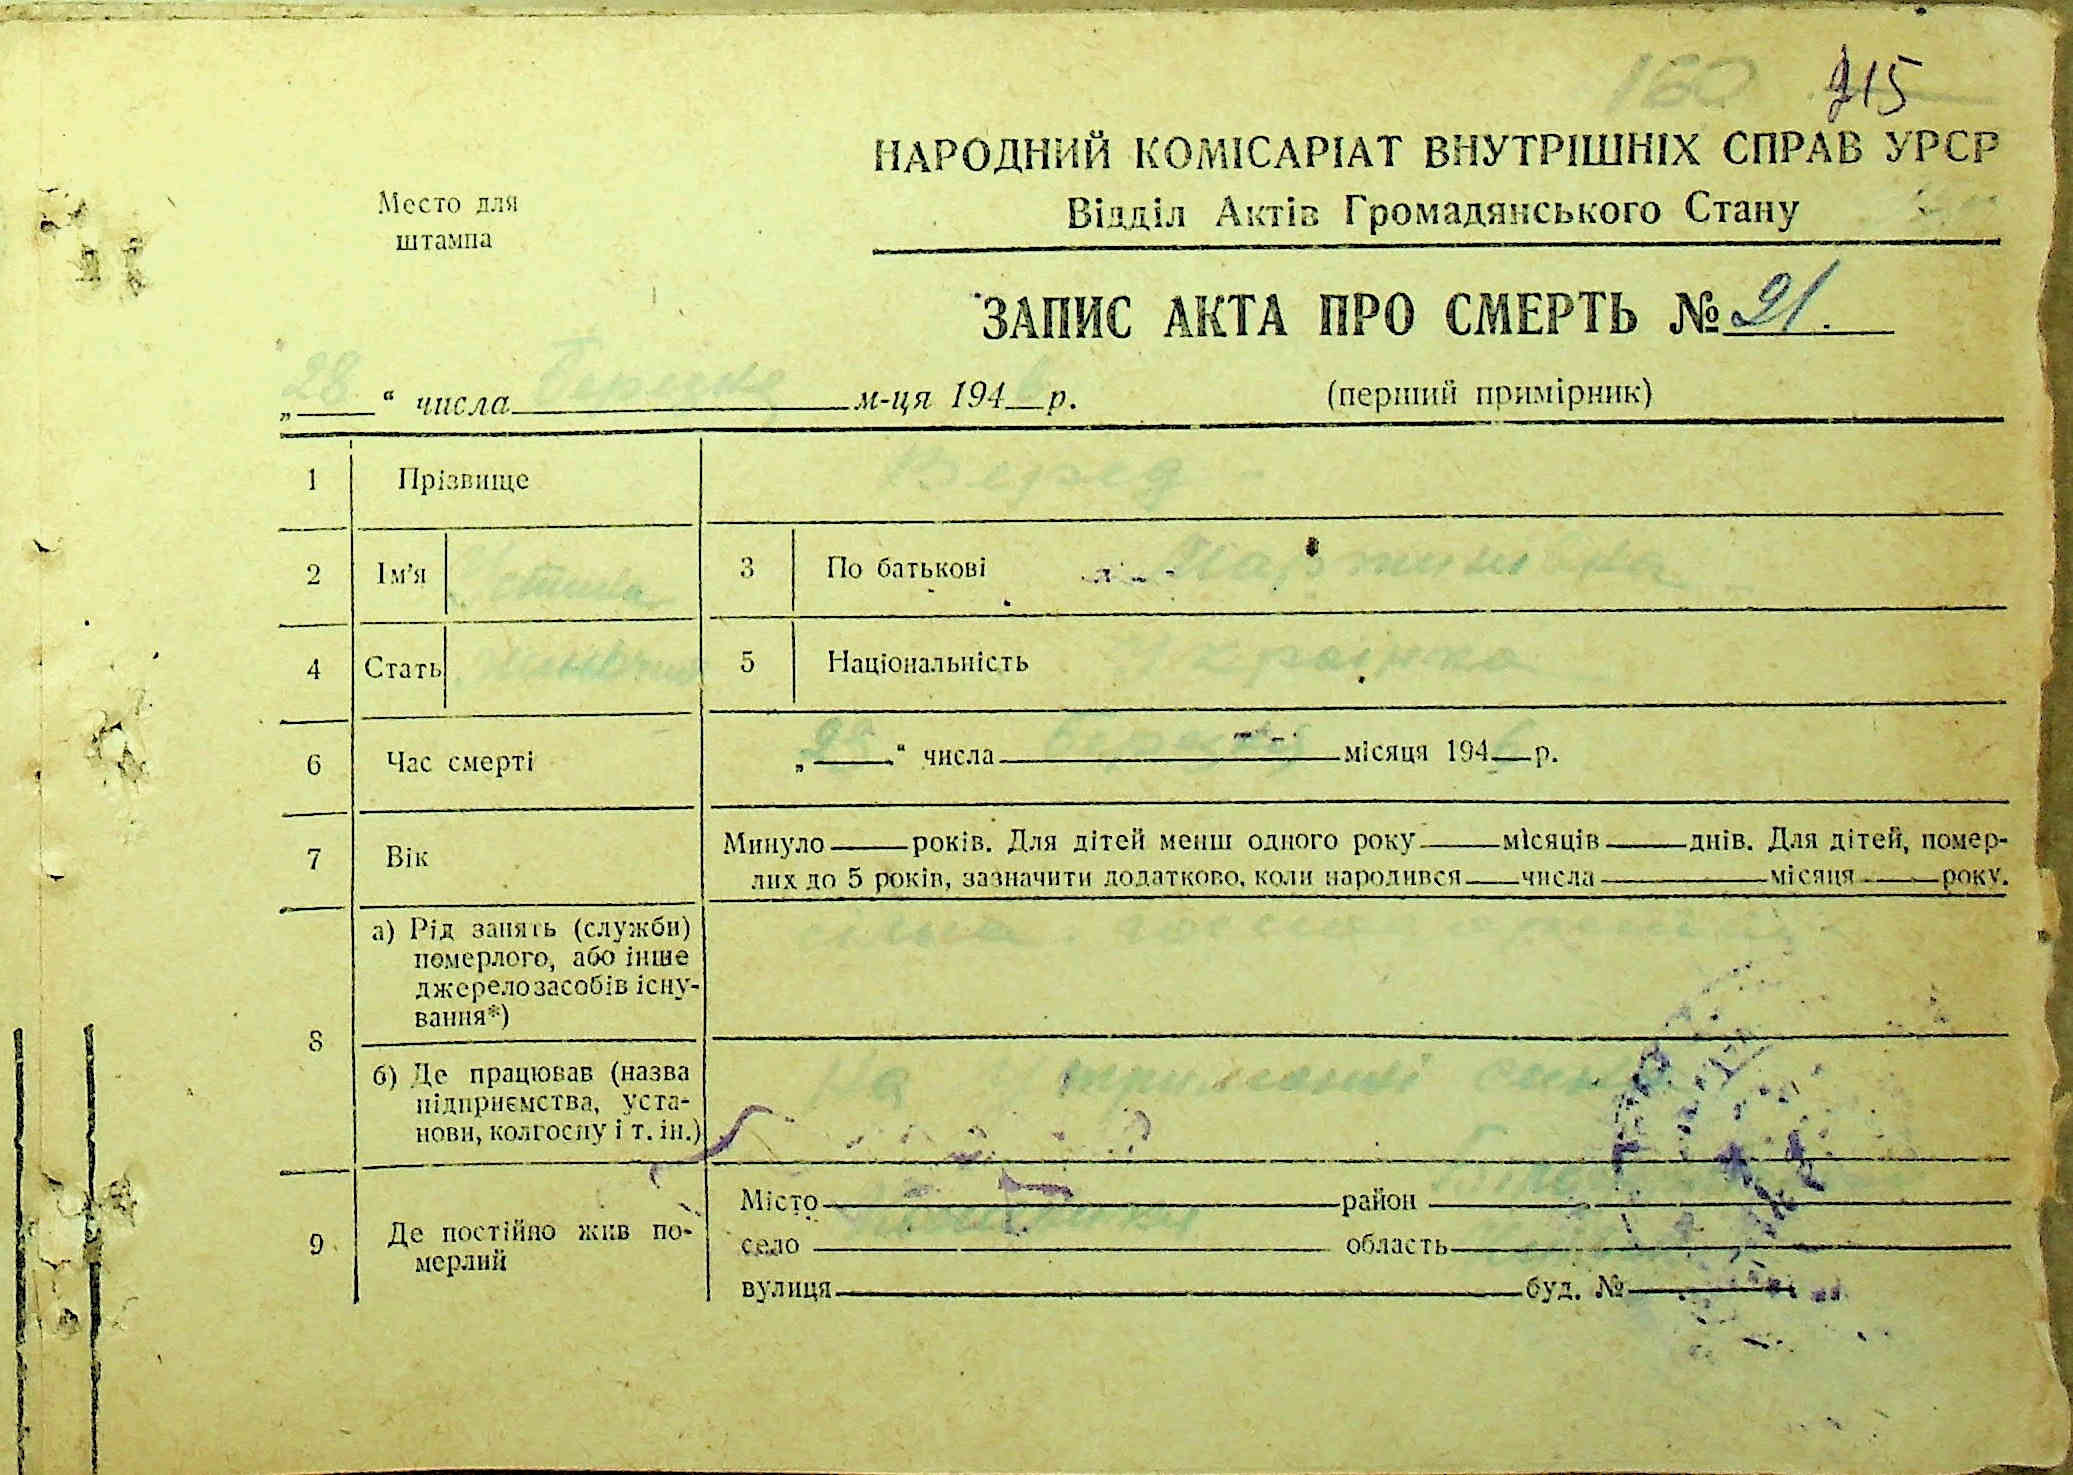 160 215
НАРОДНИЙ КОМІСАРІАТ ВНУТРІШНІХ СПРАВ УРСР
Відділ Актів Громадянського Стану
Место для
штампа
ЗАПИС АКТА ПРО СМЕРТЬ № 21.
„28“ числа Березня м-ця 1946 р.
(перший примірник)
1 Прізвище
2 Ім'я Устина 3 По батькові
4 Стать 5 Національність Українка
6 Час смерті „28“ числа Березня місяця 1946 р.
7 Вік Минуло ___ років. Для дітей менш одного року ___ місяців ___ днів. Для дітей, помер-
лих до 5 років, зазначити додатково, коли народився ___ числа ___ місяця ___ року.
8 а) Рід занять (служби)
померлого, або інше
джерело засобів існу-
вання*)
б) Де працював (назва
підприємства, уста-
нови, колгоспу і т. ін.)
На утриманні сина
9 Де постійно жив по-
мерлий
Місто ___ район
село ___ область
вулиця ___ буд. №